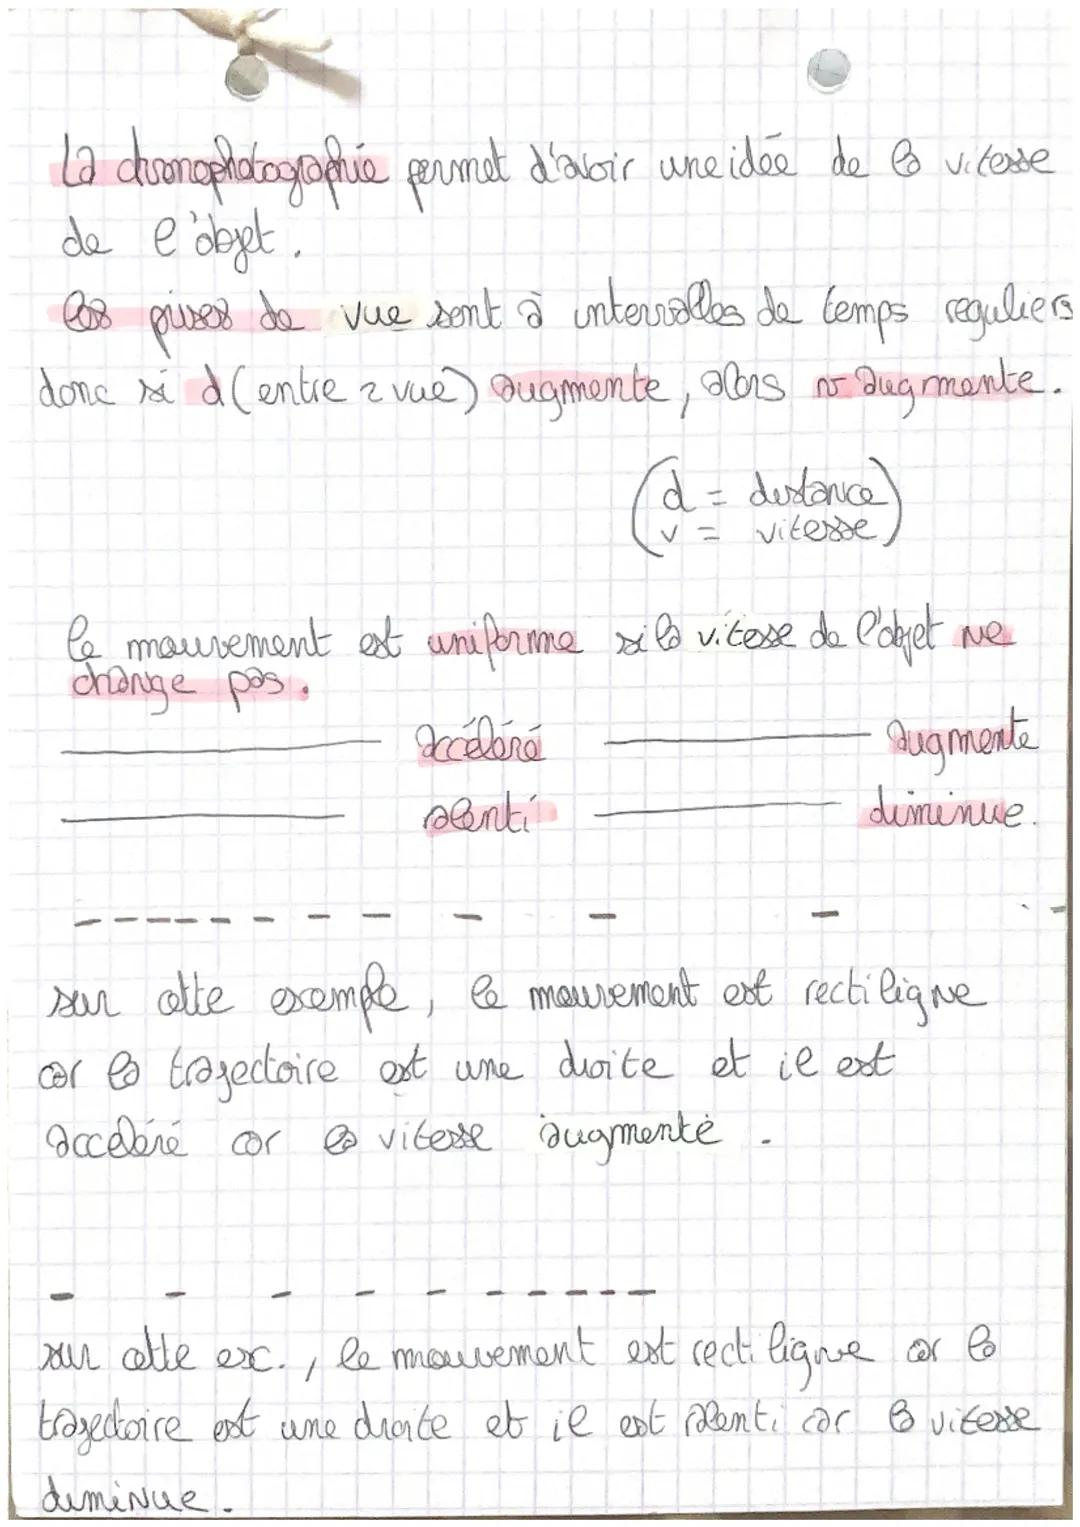 La chronophotographie permet d'avoir une idée de la vitesse
de l'objet.
les prises de vue sont à intervalles de temps reguliers
donc si d (entre 2 vue) augmente, alors v augmente.
(d = distance)
(v = vitesse)
le mouvement est uniforme si la vitesse de l'objet ne
change pas.
accéléré augmente
ralenti diminue.
sur cette exemple, le mouvement est rectiligne
car la trajectoire est une droite et il est
accéléré car la vitesse augmente.
sur cette ex., le mouvement est rectiligne car la
trajectoire est une droite et il est ralenti car la vitesse
diminue.